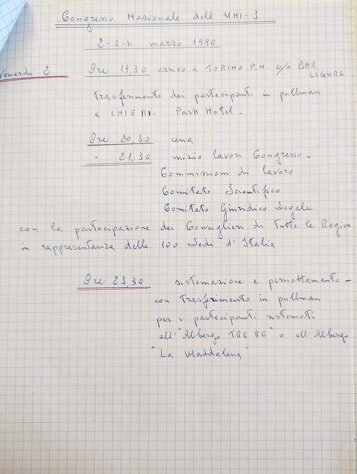 Congresso Nazionale dell'UNI-3
2-3-4 marzo 1990
Venerdi 2 Ore 19,30 arrivo a TORINO P.N. c/o BAR
LIGURE
trasferimento dei partecipanti in pullman
a CHIERI - Park Hotel.
Ore 20,30 cena
" 21,30 inizio lavori Congresso.
Commissioni di lavoro
Comitato Scientifico
Comitato Giuridico Legale
con la partecipazione dei Consiglieri di tutte le Regioni
in rappresentanza delle 100 Sedi d'Italia
Ore 23,30 sistemazione e pernottamento -
con trasferimento in pullman
per i partecipanti sistemati
all'"Albergo TRE RE" o all'Albergo
"La Maddalena"